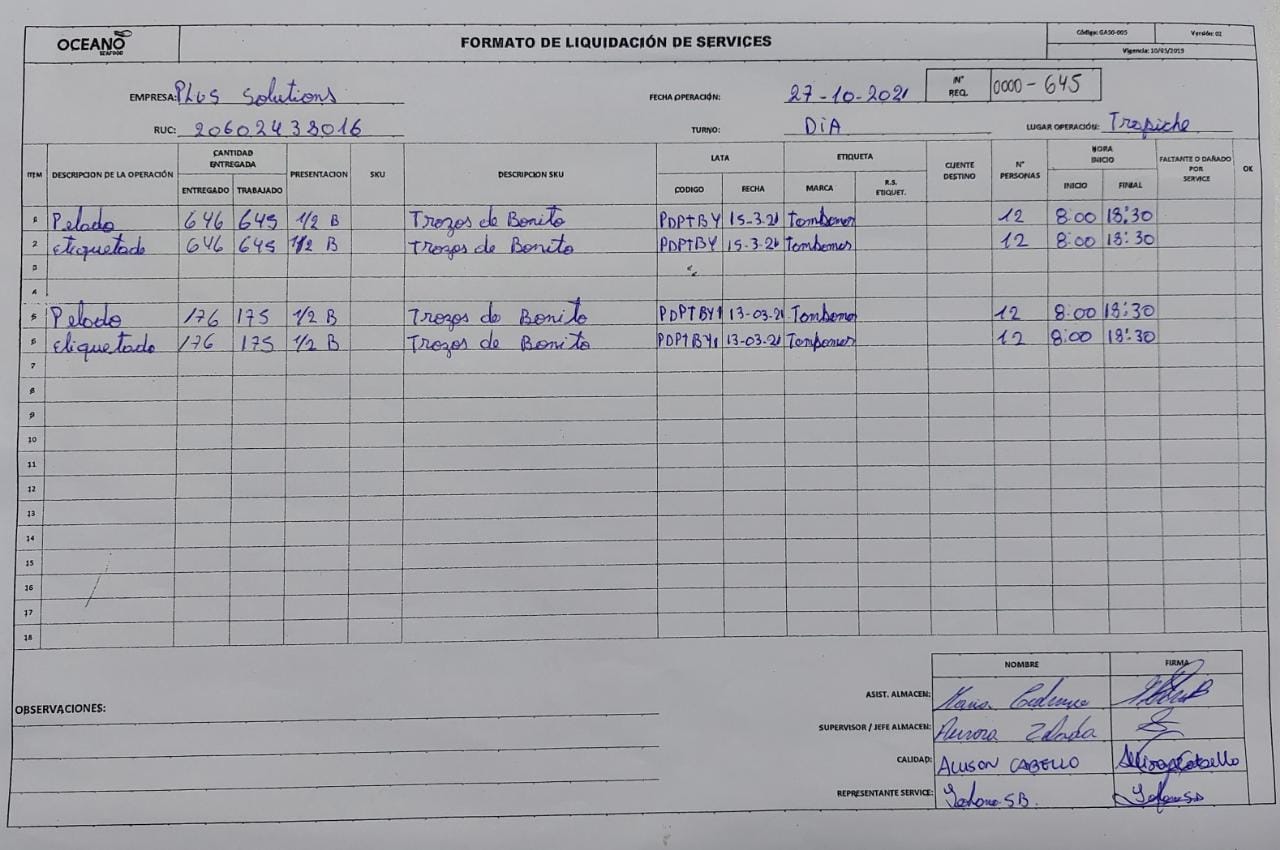 OCEANO SEAFOOD
FORMATO DE LIQUIDACIÓN DE SERVICES
Código: GASO-005 Versión: 02
Vigencia: 10/05/2019
EMPRESA: PLUS Solutions FECHA OPERACIÓN: 27-10-2021 N° REQ. 0000-645
RUC: 20602438016 TURNO: DIA LUGAR OPERACIÓN: Trapiche
ITEM DESCRIPCION DE LA OPERACIÓN CANTIDAD ENTREGADA PRESENTACION SKU DESCRIPCION SKU LATA ETIQUETA CLIENTE DESTINO N° PERSONAS HORA INICIO FALTANTE O DAÑADO POR SERVICE OK
ENTREGADO TRABAJADO CODIGO FECHA MARCA R.S. ETIQUET. INICIO FINIAL
1 Pelado 646 645 1/2 B Trozos de Bonito PDPTBY 15-3-21 12 8:00 18:30
2 Etiquetado 646 645 1/2 B Trozos de Bonito PDPTBY 15-3-21 12 8:00 18:30
3
4
5 Pelado 176 175 1/2 B Trozos de Bonito PDPTBY1 13-03-21 12 8:00 18:30
6 Etiquetado 176 175 1/2 B Trozos de Bonito PDPTBY1 13-03-21 12 8:00 18:30
7
8
9
10
11
12
13
14
15
16
17
18
NOMBRE FIRMA
OBSERVACIONES:
ASIST. ALMACEN: Maria
SUPERVISOR / JEFE ALMACEN: Aurora
CALIDAD: ALLISON CABELLO
REPRESENTANTE SERVICE: